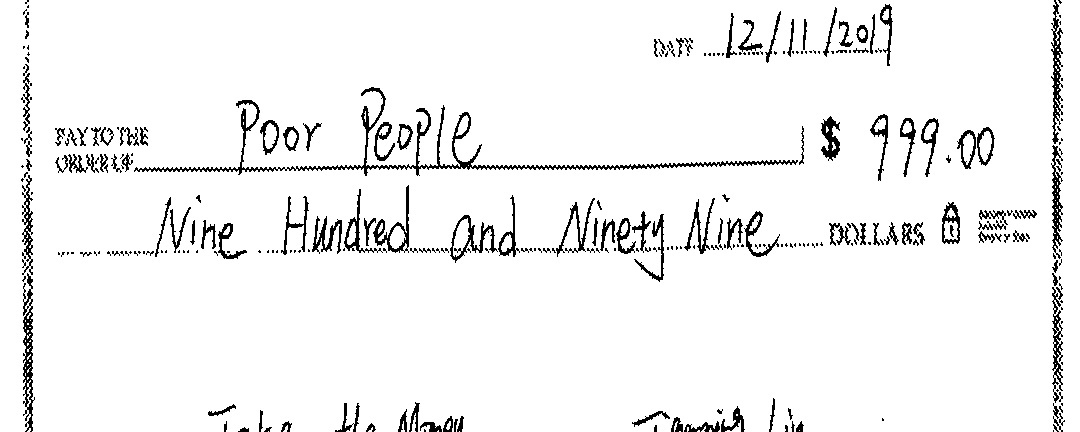 DATE 12/11/2019
PAY TO THE
ORDER OF Poor People $ 999.00
Nine Hundred and Ninety Nine DOLLARS
Take the Money